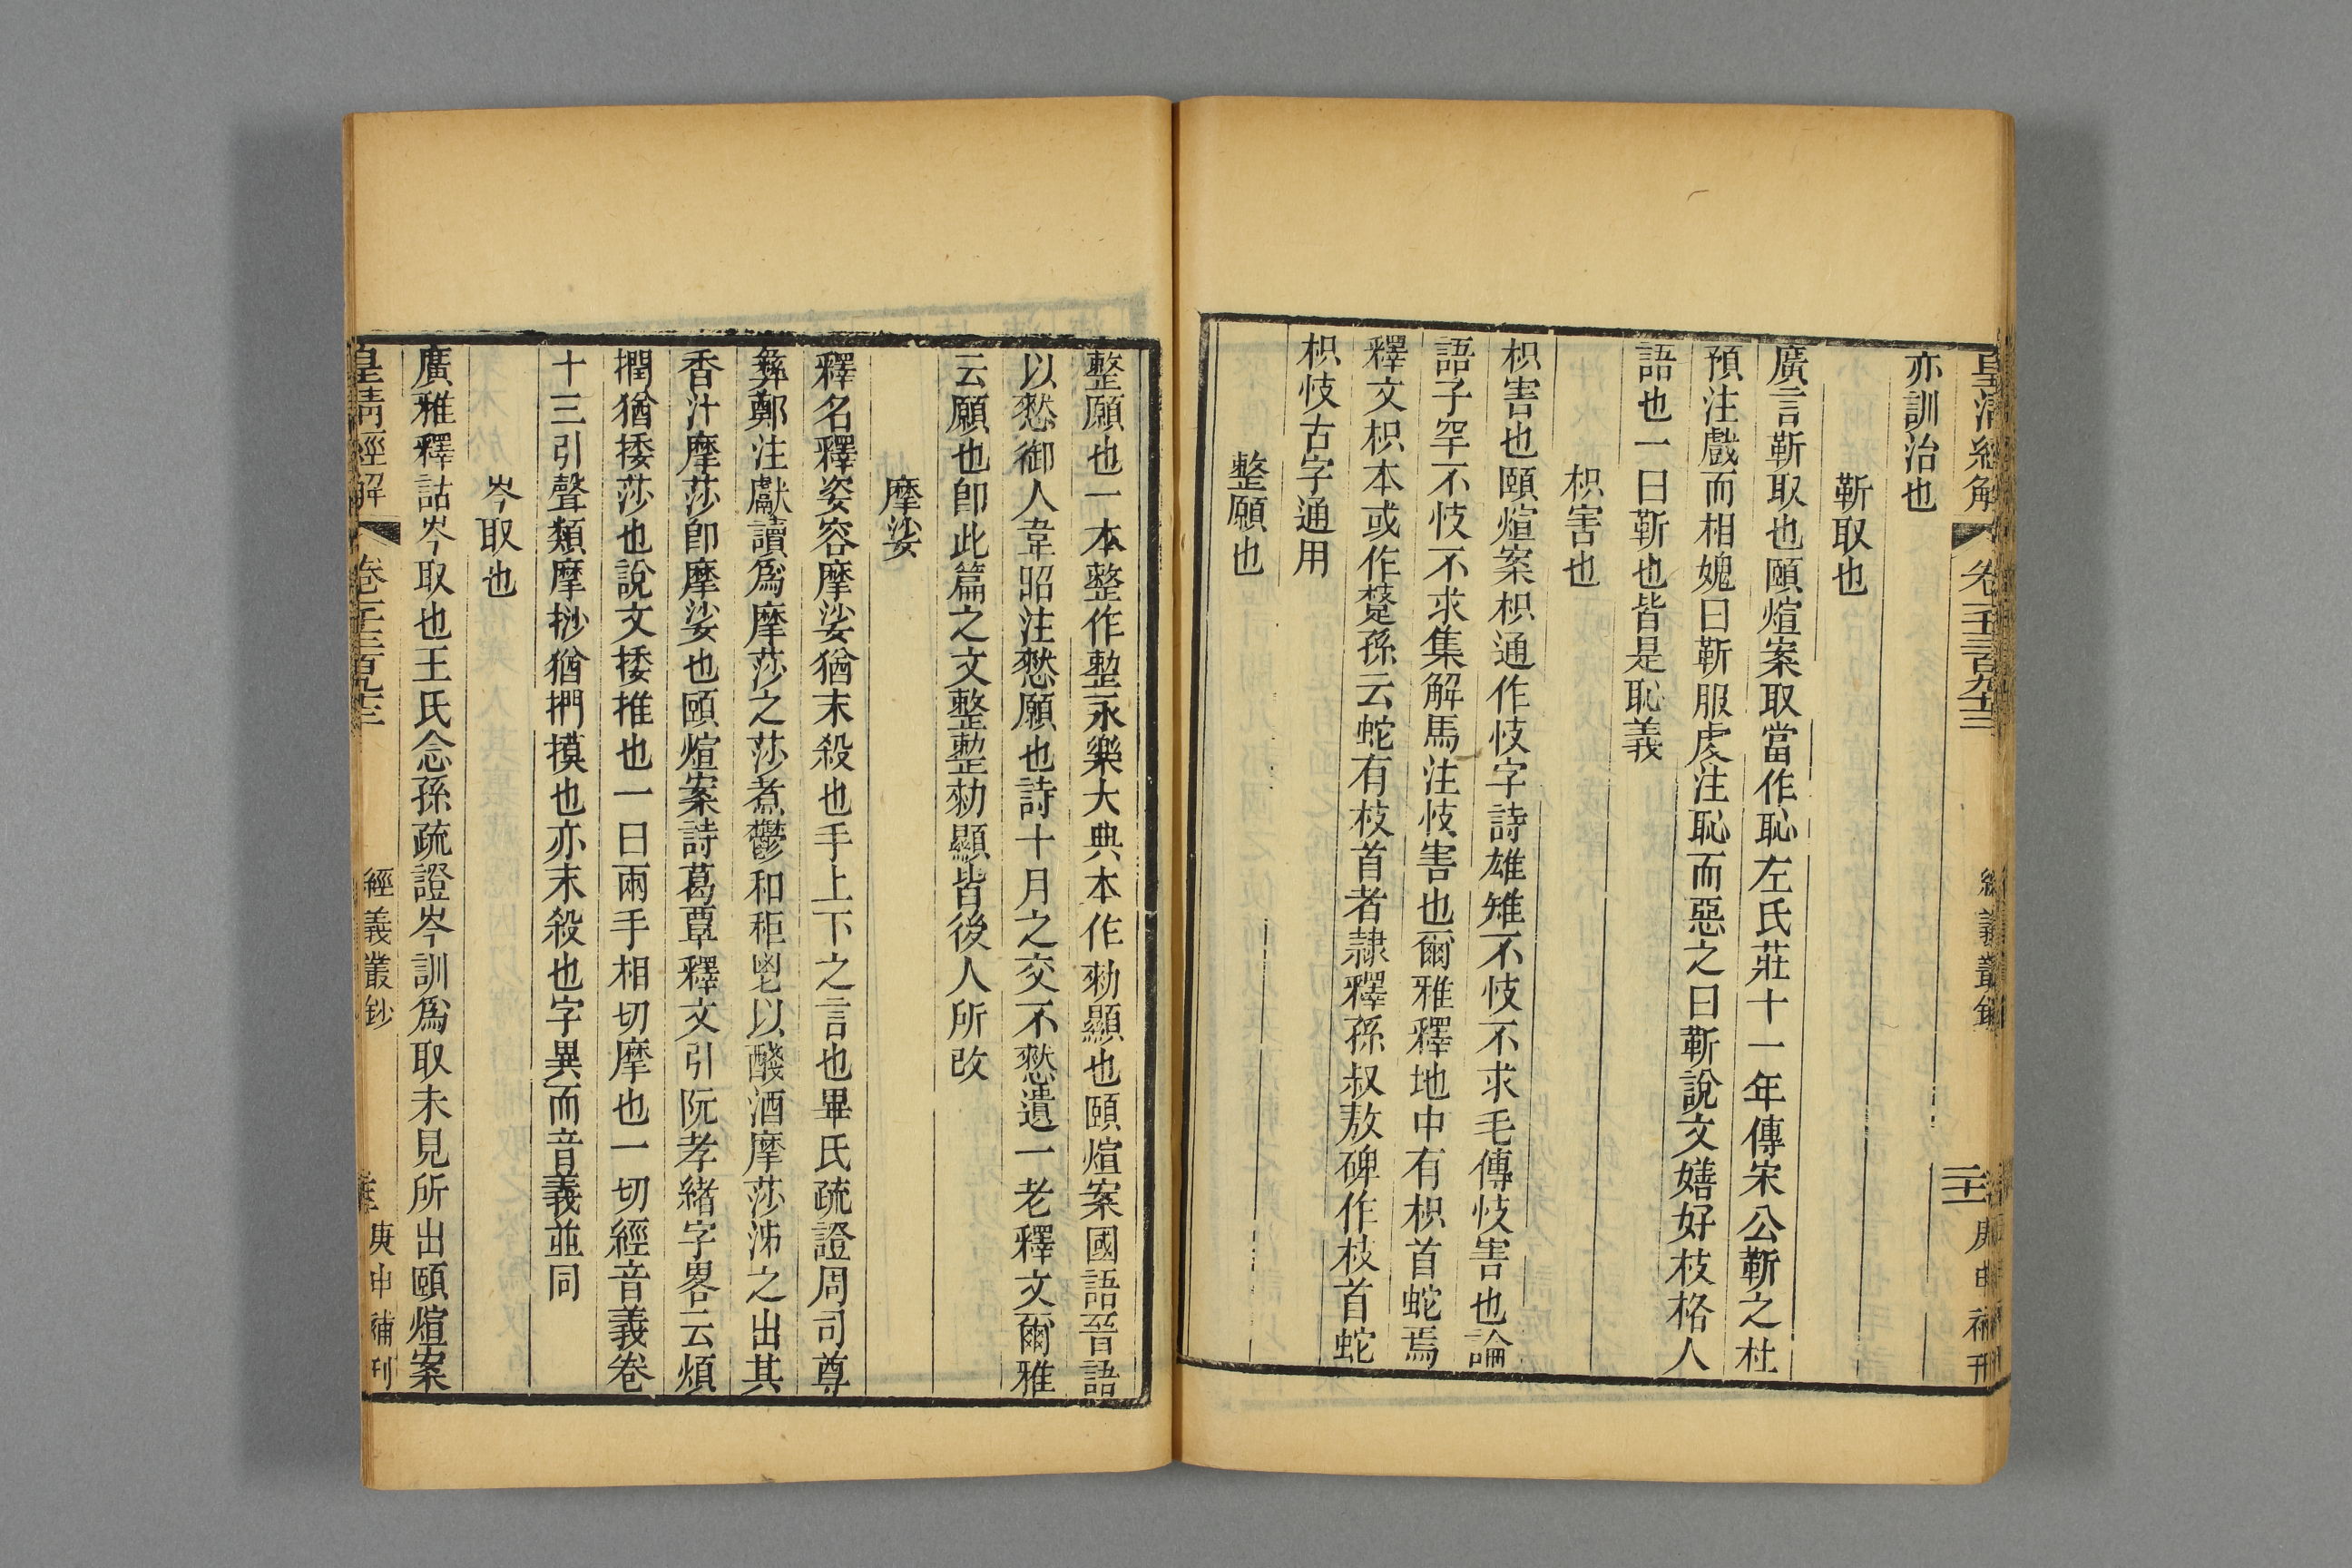 皇清經解
卷一千三百九十三
經義叢鈔
二十一
庚申補刊
亦訓治也
靳取也
廣言靳取也頤煊案取當作恥左氏莊十一年傳宋公靳之杜
預注戲而相媿曰靳服虔注恥而惡之曰靳說文嫸好枝格人
語也一曰靳也皆是恥義
枳害也
枳害也頤煊案枳通作忮字詩雄雉不忮不求毛傳忮害也論
語子罕不忮不求集解馬注忮害也爾雅釋地中有枳首蛇焉
釋文枳本或作𧿁孫云蛇有枝首者隷釋孫叔敖碑作枝首蛇
枳忮古字通用
整願也
整願也一本整作慭永樂大典本作勑顯也頤煊案國語晉語
以憖御人韋昭注憖願也詩十月之交不憖遺一老釋文爾雅
云願也卽此篇之文整慭勑顯皆後人所改
摩娑
釋名釋姿容摩娑猶末殺也手上下之言也畢氏疏證周司尊
彝鄭注獻讀爲摩莎之莎煮鬱和秬鬯以醆酒摩莎沸之出其
香汁摩莎卽摩娑也頤煊案詩葛覃釋文引阮孝緒字畧云煩
撋猶捼莎也說文捼推也一曰兩手相切摩也一切經音義卷
十三引聲類摩挱猶捫摸也亦末殺也字異而音義並同
岑取也
廣雅釋詁岑取也王氏念孫疏證岑訓爲取未見所出頤煊案
皇清經解
卷一千三百九十三
經義叢鈔
庚申補刊